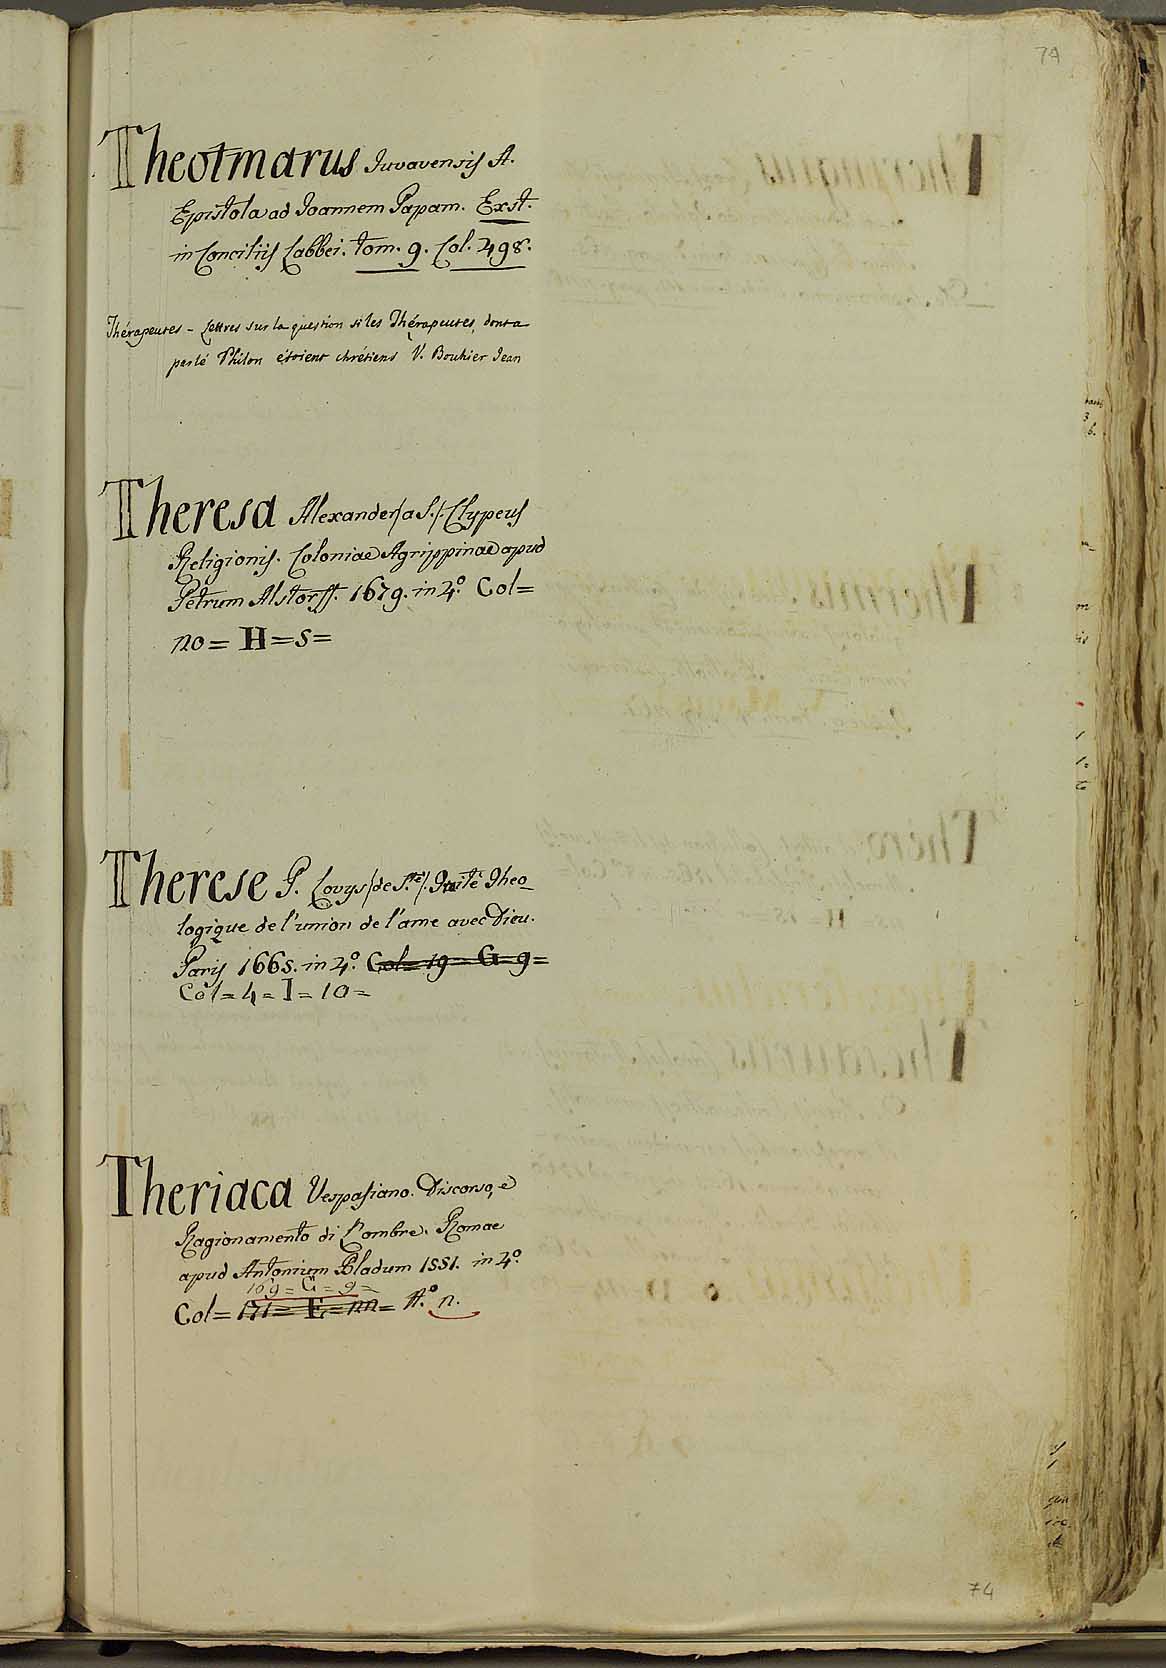 74
Theotmarus Iuvavensis A.
Epistola ad Ioannem Papam. Exst.
in Conciliis Labbei. tom. 9. Col. 498.
Thérapeutes - Lettres sur la question si les Thérapeutes, dont a
parlé Philon étoient chrétiens V. Bouhier Jean
Theresa Alexander /a S./. Clypeus
Religionis. Coloniae Agrippinae apud
Petrum Alstorff. 1679. in 4.º Col=
no= H=s=
Therese P. Lovys /de S.te/. Traité Theo-
logique de l'union de l'ame avec Dieu.
Paris 1665. in 4.º Col= 19= G= 9=
Col= 4= I= 10=
Theriaca Vespasiano. Discorso, e
Ragionamento di Ombre. Romae
apud Antonium Bladum 1551. in 4.º
109= G= 9=
Col= 171= E= nn= A.º n.
74